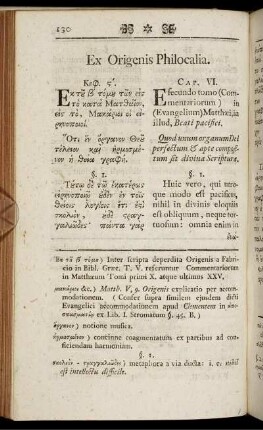 130
Ex Origenis Philocalia.
Κεφ. ς΄.
Εκ τῦ β΄ τόμυ τῶν εἰς
τὸ κατὰ Ματθαῖον,
εἰς τὸ, Μακάριοι οἱ εἰ-
ρηνοποιοί.
Ὅτι ἓν ὄργανον Θεῦ
τέλειον καὶ ἡρμοσμέ-
νον ἡ θεία γραφή.
§. 1.
Τύτῳ δὲ τῷ
εἰρηνοποιῷ οὐδὲν ἐν τοῖς
θείοις λογίοις ἔτι ἐςὶ
σκολιὸν, οὐδὲ ςραγ-
γαλιῶδες πάντα γὰρ
CAP. VI.
E secundo tomo (Com-
mentariorum) in
(Evangelium) Matthæi, in
illud, Beati pacifici.
Quod unum organum Dei
perfectum & apte compo-
tum sit divina Scriptura.
§. 1.
Huic vero, qui utro-
que modo est pacificus,
nihil in divinis eloquiis
est obliquum, neque tor-
tuosum: omnia enim in
Εκ τῦ β΄ τόμυ) Inter scripta deperdita Origenis a Fabri-
cio in Bibl. Græc. T. V. reſeruntur Commentariorum
in Matthæum Tomi priori X. atque ultimus XXV.
μακάριοι &c.) Matth. V, 9. Origenis explicatio per accom-
modationem. (Confer supra similem ejusdem dicti
Evangelici accommodationem apud Clementem in
ex Lib. I. Stromatum §. 45. B.)
ὄργανον) notione musica.
ἡρμοσμένον) continuo coagmentatum ex partibus ad con-
ficiendam harmoniam.
§. 1.
σκολιὸν - ςραγγαλιῶδες) metaphora a via ducta: i. e. nihil
est intellectu difficile.